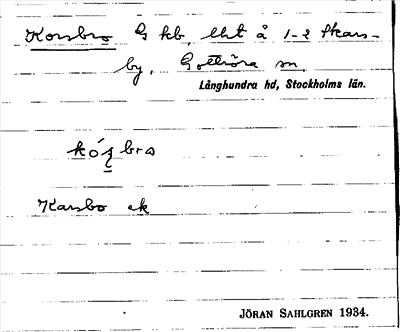 Korsbro G kb, lht å 1-2 Skars-
by, Gottröra sn.
Långhundra hd, Stockholms län.
Karsbo ek
JÖRAN SAHLGREN 1934.